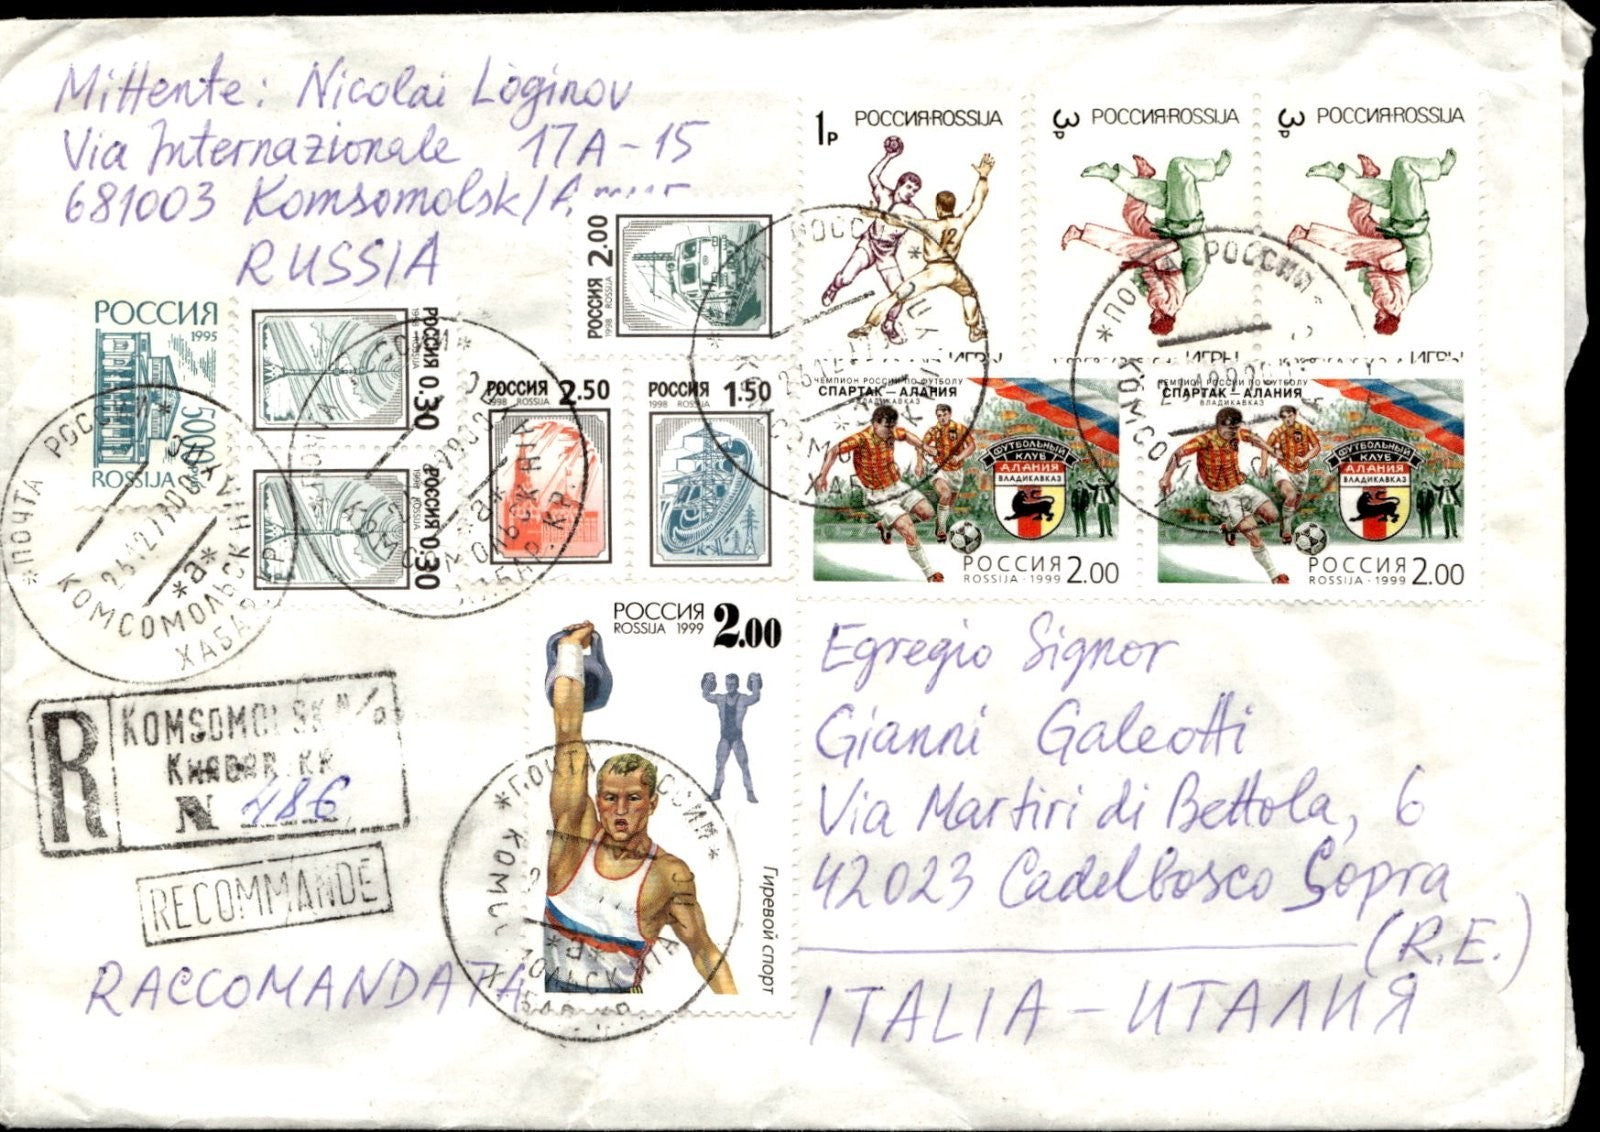 Mittente: Nicolai Loginov
Via Internazionale 17A-15
681003 Komsomolsk/A
RUSSIA
РОССИЯ
1995
5000
ROSSIJA
РОССИЯ 0.30
1998 ROSSIJA
РОССИЯ 0.30
1998 ROSSIJA
РОССИЯ 2.00
1998 ROSSIJA
РОССИЯ 2.50
1998 ROSSIJA
РОССИЯ 1.50
1998 ROSSIJA
1р РОССИЯ·ROSSIJA
12
ИГРЫ
3р РОССИЯ·ROSSIJA
ИГРЫ
3р РОССИЯ·ROSSIJA
ИГРЫ
ЧЕМПИОН РОССИИ ПО ФУТБОЛУ
СПАРТАК – АЛАНИЯ
ВЛАДИКАВКАЗ
ФУТБОЛЬНЫЙ
КЛУБ
АЛАНИЯ
ВЛАДИКАВКАЗ
РОССИЯ
ROSSIJA · 1999 2.00
ЧЕМПИОН РОССИИ ПО ФУТБОЛУ
СПАРТАК – АЛАНИЯ
ВЛАДИКАВКАЗ
ФУТБОЛЬНЫЙ
КЛУБ
АЛАНИЯ
ВЛАДИКАВКАЗ
РОССИЯ
ROSSIJA · 1999 2.00
*ПОЧТА РОССИИ*
КОМСОМОЛЬСК НА
ХАБАР
*а*
РОССИЯ 2.00
ROSSIJA 1999
Гиревой спорт
R KOMSOMOLSK N/a
KHABAR. KR
N 486
RECOMMANDE
RACCOMANDATA
Egregio Signor
Gianni Galeotti
Via Martiri di Bettola, 6
42023 Cadelbosco Sopra
(R.E.)
ITALIA – ИТАЛИЯ